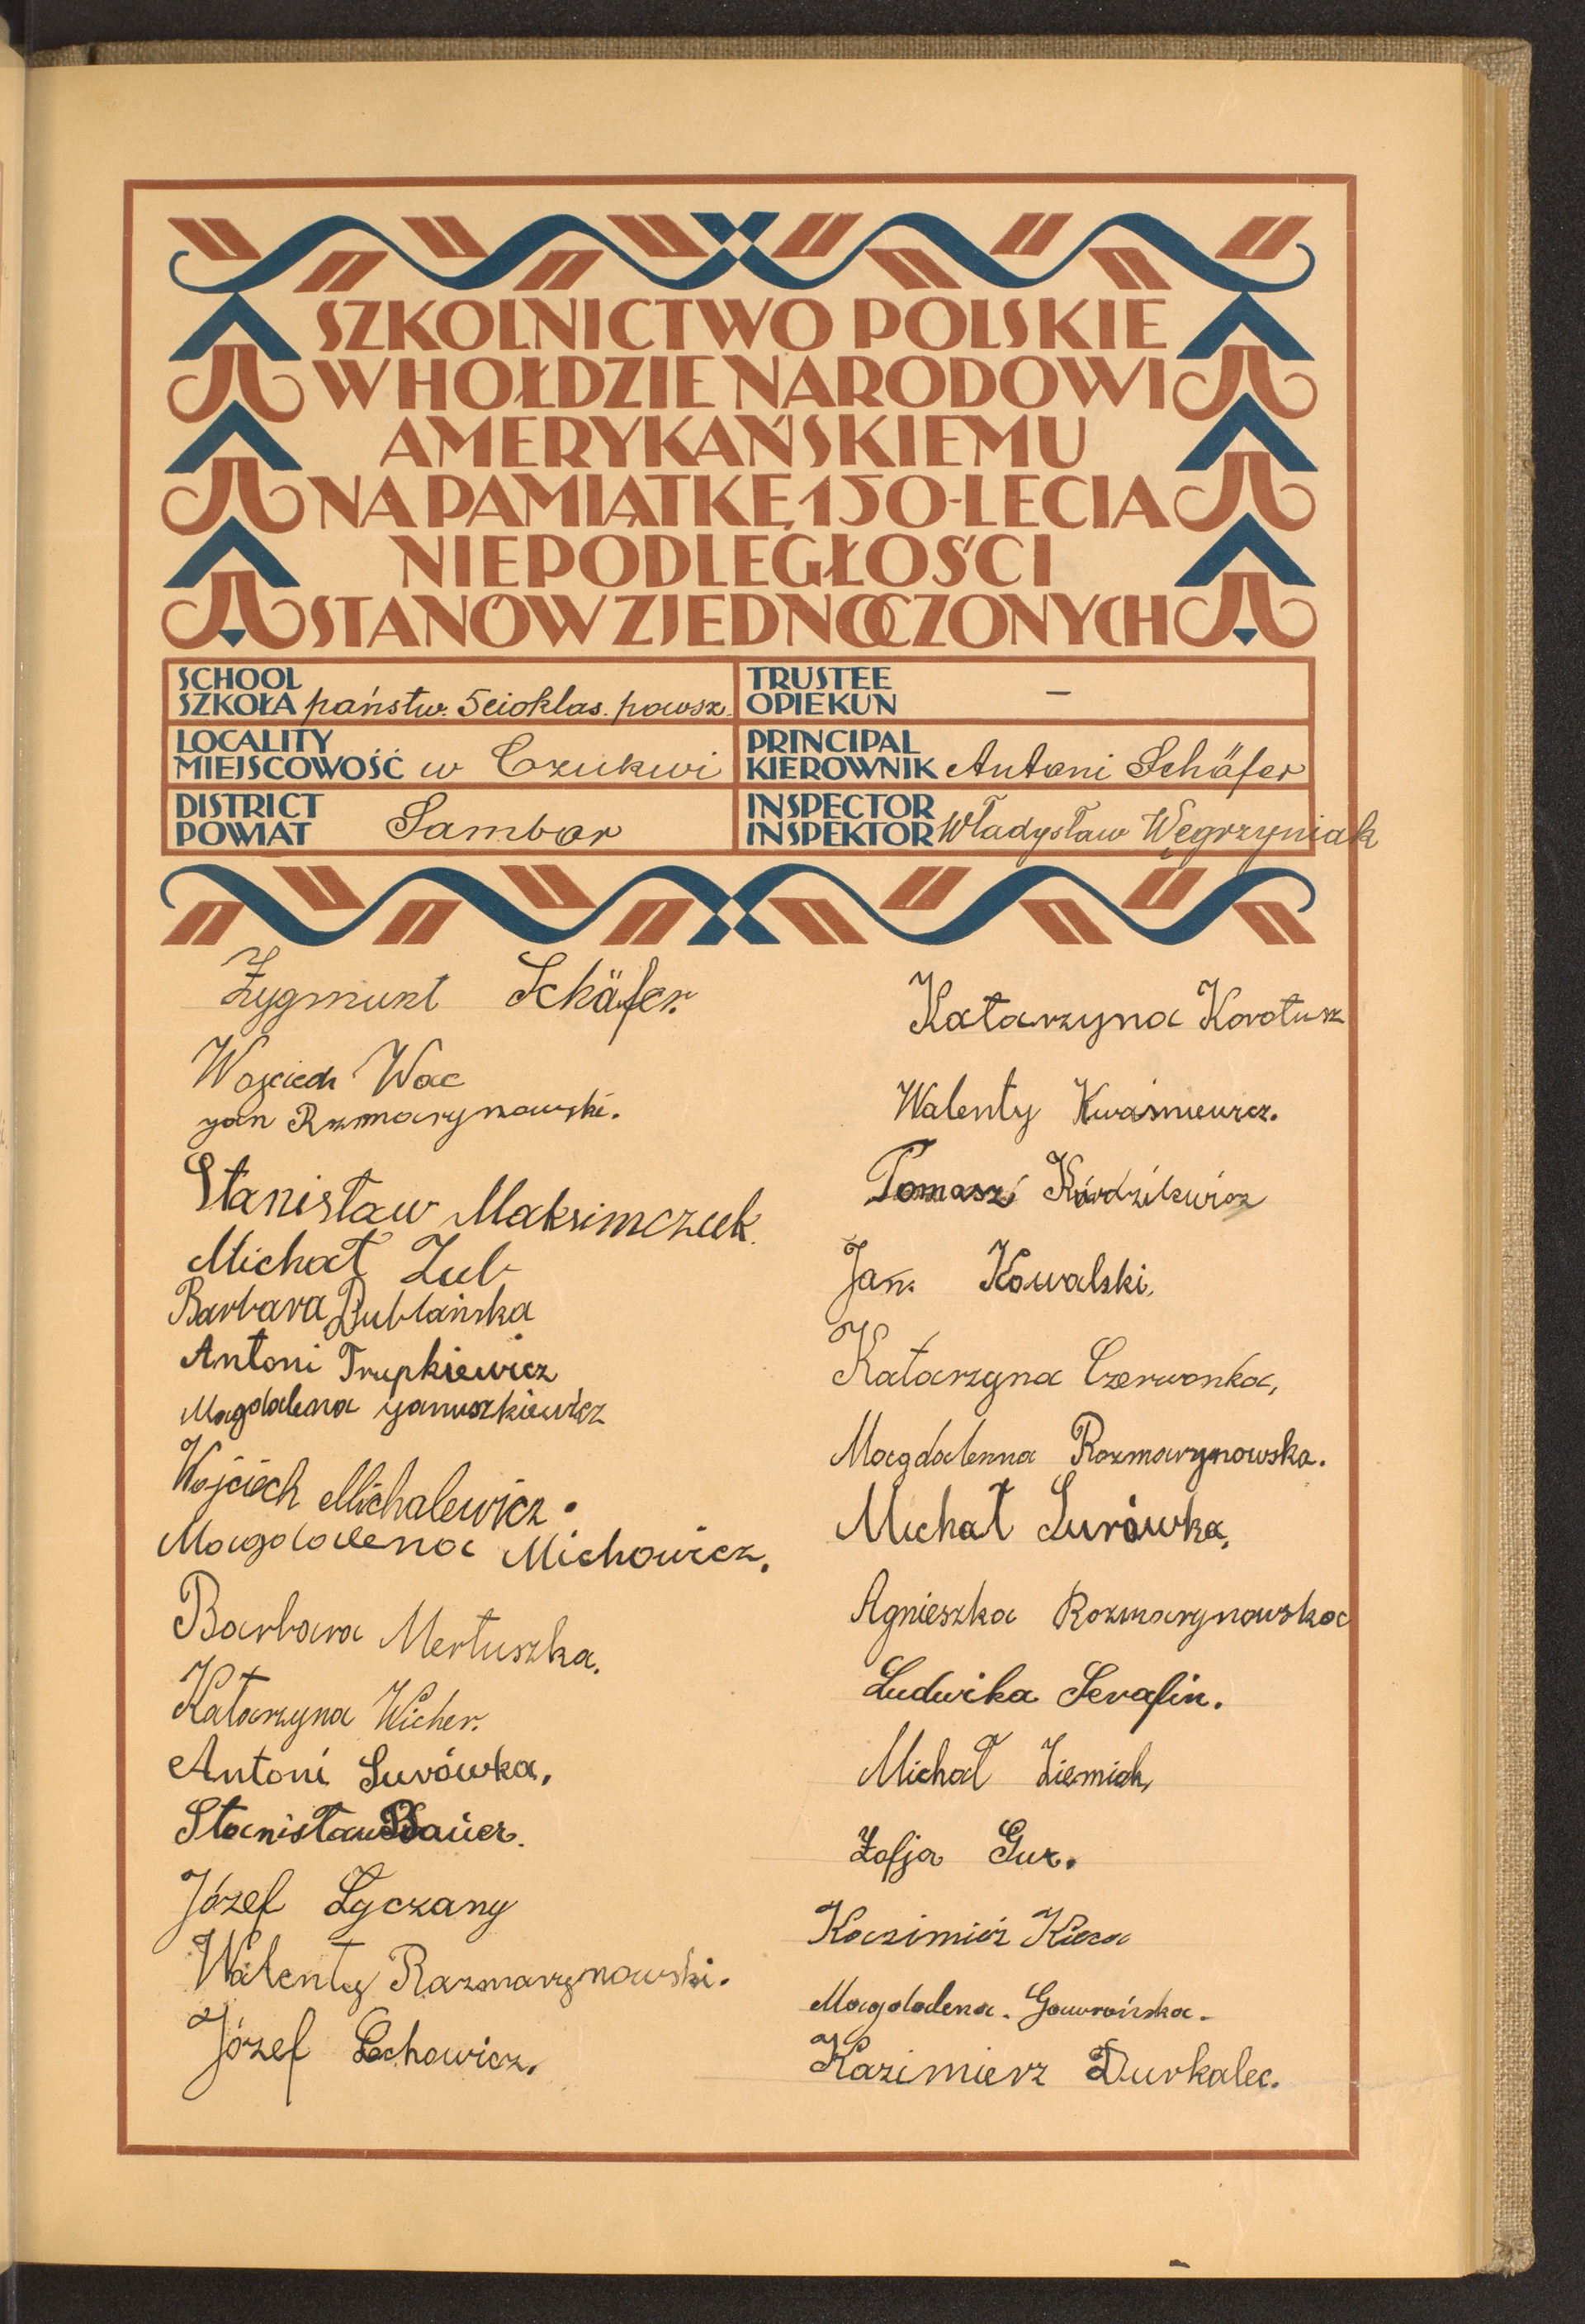 SZKOLNICTWO POLSKIE
W HOŁDZIE NARODOWI
AMERYKAŃSKIEMU
NA PAMIĄTKĘ 150-LECIA
NIEPODLEGŁOŚCI
STANÓW ZJEDNOCZONYCH
SCHOOL
SZKOŁA państw. 5cioklas. powsz.
TRUSTEE
OPIEKUN –
LOCALITY
MIEJSCOWOŚĆ w Czukwi
PRINCIPAL
KIEROWNIK Antoni Schäfer
DISTRICT
POWIAT Sambor
INSPECTOR
INSPEKTOR Władysław Węgrzyniak
Zygmunt Schäfer.
Wojciech Wac
Jan Rozmarynowski.
Stanisław Maksimczuk.
Michał Zub
Barbara Dublańska
Antoni Trupkiewicz
Magdalena Januszkiewicz
Wojciech Michalewicz.
Magdalena Michowicz.
Barbara Mertuszka.
Katarzyna Wicher.
Antoni Surówka,
Stanisław Bauer.
Józef Łyczany
Walenty Razmarynowski.
Józef Lechowicz.
Katarzyna Korotusz
Walenty Kwaśniewicz.
Tomasz
Jan. Kowalski.
Katarzyna Czerwonka,
Magdalenna Rozmarynowska.
Michał Surówka,
Agnieszka Rozmarynowska
Ludwika Serafin.
Michał Ziemiak,
Zofja Guz.
Kazimież Kieza
Magdalena. Gawrońska.
Kazimierz Durkalec.